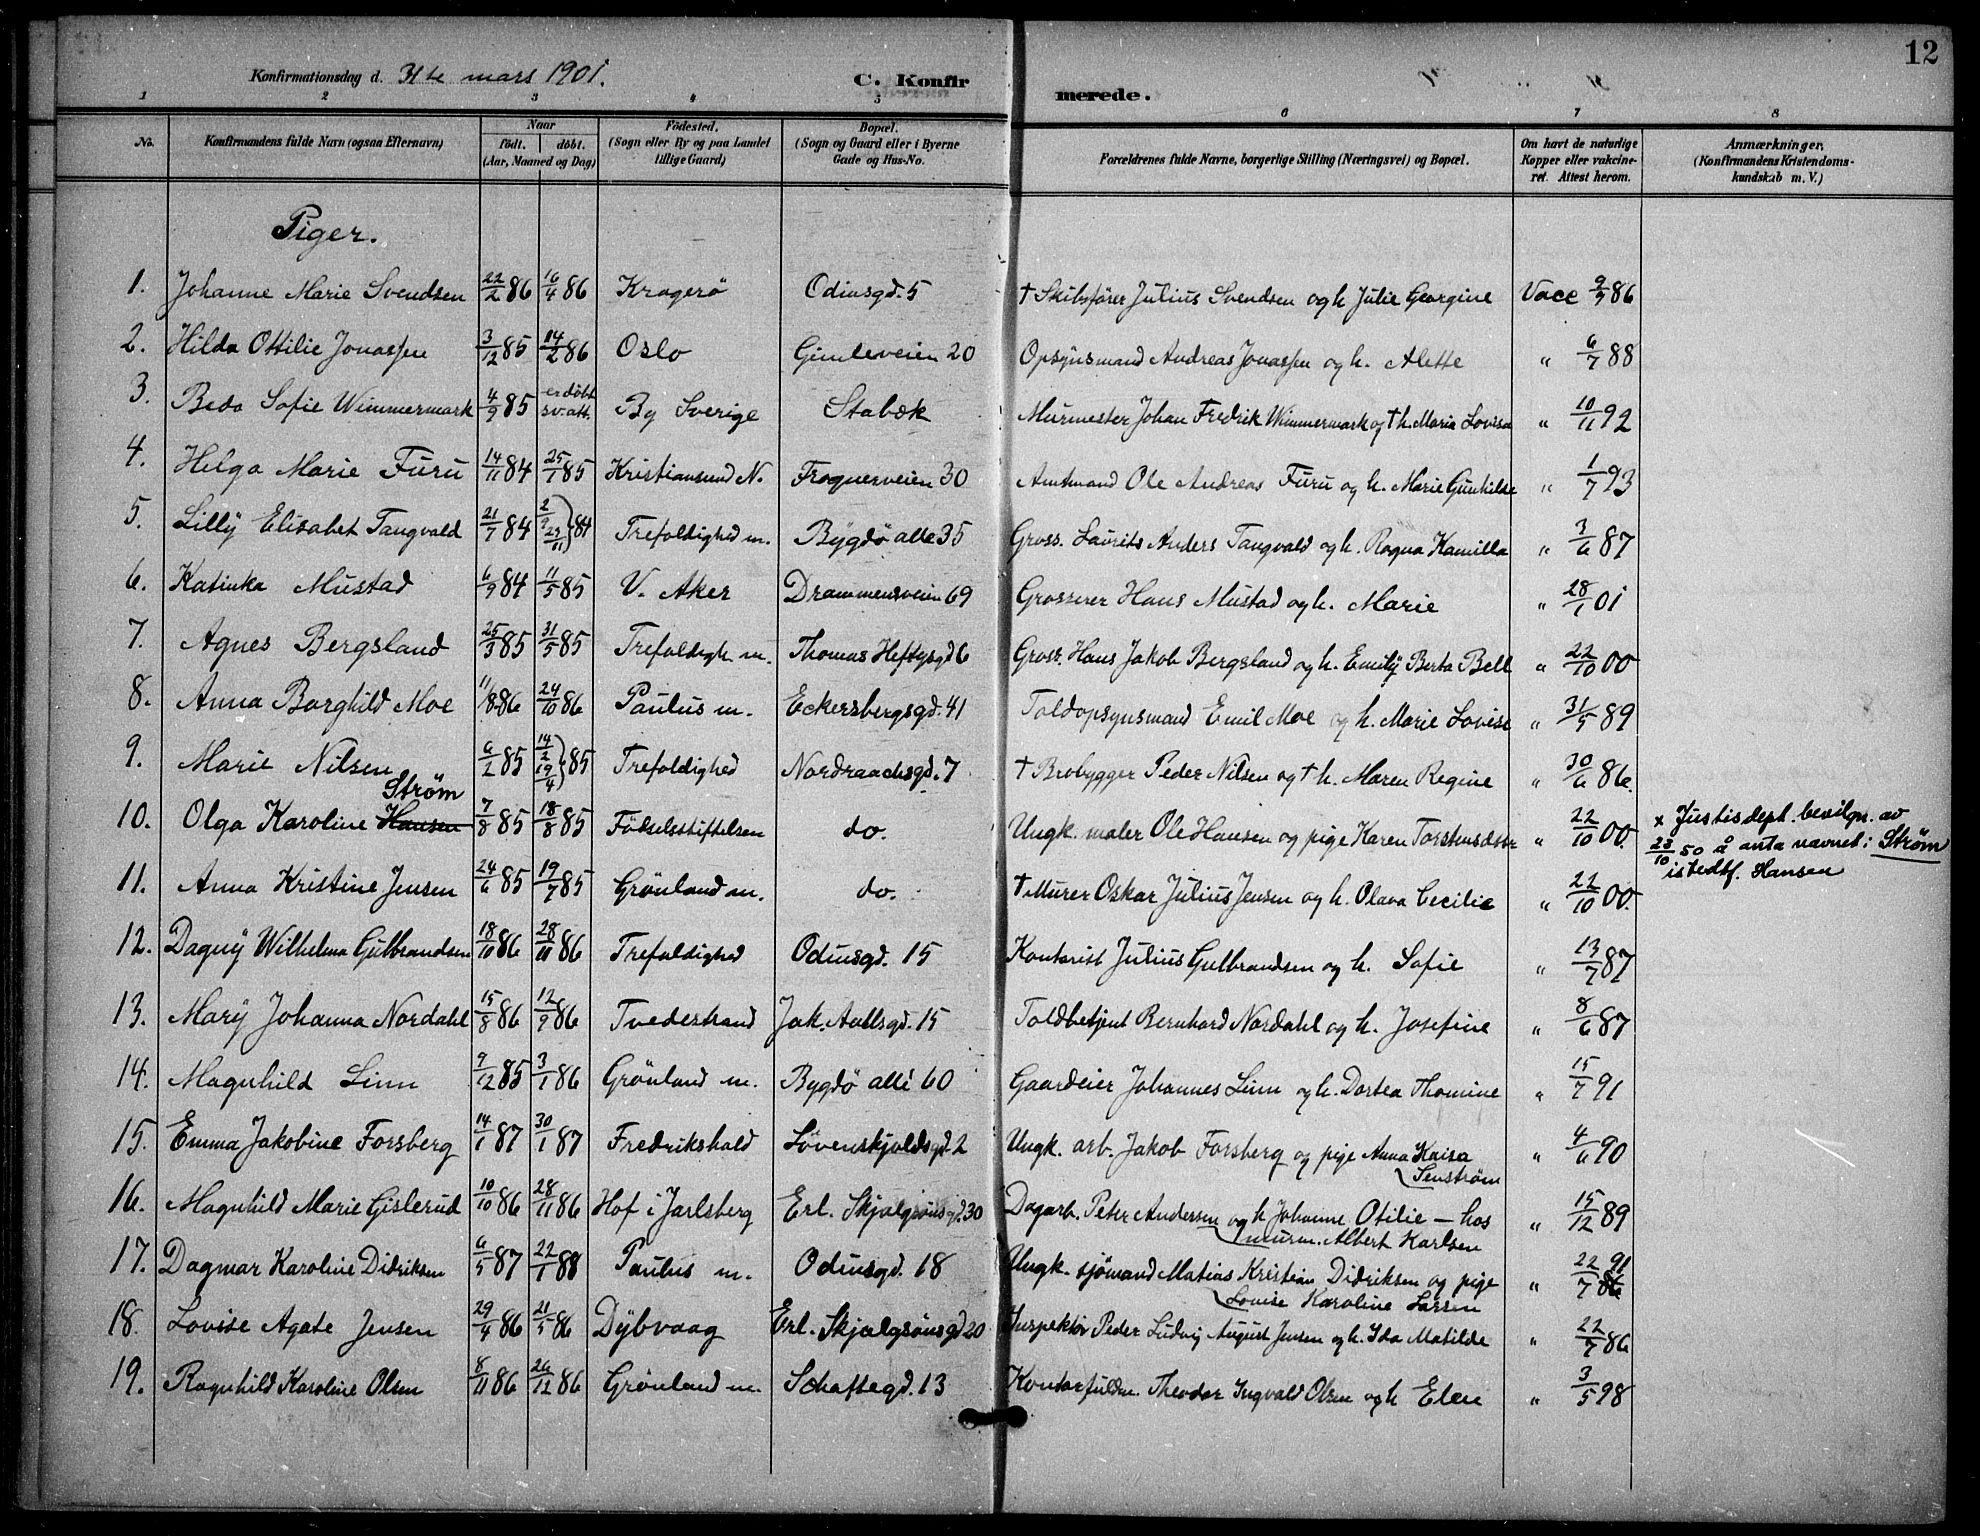 12
Konfirmationsdag d. 31te mars 1901. C. Konfirmerede.
1 2 3 4 5 6 7 8
No. Konfirmandens fulde Navn (ogsaa Efternavn) Naar födt. döbt. (Aar, Maaned og Dag) Födested. (Sogn eller By og paa Landet tillige Gaard) Bopæl. (Sogn og Gaard eller i Byerne Gade og Hus-No. Forældrenes fulde Navne, borgerlige Stilling (Næringsvei) og Bopæl. Om havt de naturlige Kopper eller vakcineret. Attest herom. Anmærkninger. (Konfirmandens Kristendomskundskab m. V.)
Piger.
1. Johanne Marie Svendsen 22/2 86 16/4 86 Kragerö Odinsgd. 5 † Skibsförer Julius Svendsen og h. Julie Georgine Vacc 9/7 86
2. Hilda Ottilie Jonassen 3/12 85 14/2 86 Oslo Gimleveien 20 Opsynsmand Andreas Jonassen og h. Alette " 6/7 88
3. Beda Sofie Wimmermark 4/9 85 er döbt sv. att. By Sverige Stabæk Murmester Johan Fredrik Wimmermark og † h. Maria Lovisa " 10/11 92
4. Helga Marie Furu 14/11 84 25/1 85 Kristiansund N. Frognerveien 30 Amtmand Ole Andreas Furu og h. Marie Gunhilde " 1/7 93
5. Lilly Elisabet Tangvald 21/7 84 2/9 23/11 } 84 Trefoldighed m. Bygdö alle 35 Gross. Laurits Anders Tangvald og h. Ragna Kamilla " 3/6 87
6. Katinka Mustad 6/9 84 11/5 85 V. Aker Drammensveien 69 Grosserer Hans Mustad og h. Marie " 28/1 01
7. Agnes Bergsland 25/3 85 31/5 85 Trefoldigh m. Thomas Heftysgd 6 Gross. Hans Jakob Bergsland og h. Emily Berta Bell " 22/10 00
8. Anna Borghild Moe 11/8 86 24/10 86 Paulus m. Eckersbergsgd. 41 Toldopsynsmand Emil Moe og h. Marie Lovise " 31/5 89
9. Marie Nilsen 6/2 85 14/2 19/4 } 85 Trefoldighed Nordraachsgd. 7 † Brobygger Peder Nilsen og † h. Maren Regine " 30/6 86.
Strøm
10. Olga Karoline Hansen 7/8 85 18/8 85 Födselsstiftelsen do. Ungk. maler Ole Hansen og pige Karen Torstensdtr " 22/10 00. x Justisdept. bevilgn. av
23/10 50 å anta navnet: Strøm
istedtf. Hansen
11. Anna Kristine Jensen 24/6 85 19/7 85 Grönland m. do. † Murer Oskar Julius Jensen og h. Olava Cecilie " 22/10 00.
12. Dagny Wilhelma Gulbrandsen 18/10 86 28/11 86 Trefoldighed Odinsgd. 15 Kontorist Julius Gulbrandsen og h. Sofie " 13/7 87
13. Mary Johanna Nordahl 15/8 86 12/9 86 Tvedestrand Jak. Aallsgd. 15 Toldbetjent Bernhard Nordahl og h. Josefine " 8/6 87
14. Magnhild Linn 9/12 85 3/1 86 Grönland m. Bygdö allé 60 Gaardeier Johannes Linn og h. Dortea Thomine " 15/7 91
15. Emma Jakobine Forsberg 14/1 87 30/1 87 Fredrikshald Lövenskjoldsgd. 2 Ungk. arb. Jakob Forsberg og pige Anna Kaisa " 4/6 90
Senström
16. Magnhild Marie Gislerud 10/10 86 28/11 86 Hof i Jarlsberg Erl. Skjalgsönsgd. 30 Dagarb. Peter Andersen og h Johanne Otilie — hos " 15/12 89
murm. Albert Karlsen
17. Dagmar Karoline Didriksen 6/5 87 22/1 88 Paulus m. Odinsgd. 18 Ungk. sjömand Matias Kristian Didriksen og pige " 22/7 91
Lovise Karoline Larsen
18. Lovise Agate Jensen 29/4 86 21/5 86 Dybvaag Erl. Skjalgsönsgd 20 Inspektör Peder Ludvig August Jensen og h. Ida Matilde " 22/7 86
19. Ragnhild Karoline Olsen 8/11 86 26/12 86 Grönland m. Schaftegd. 13 Kontorfuldm. Theodor Ingvald Olsen og h Elen " 3/5 98